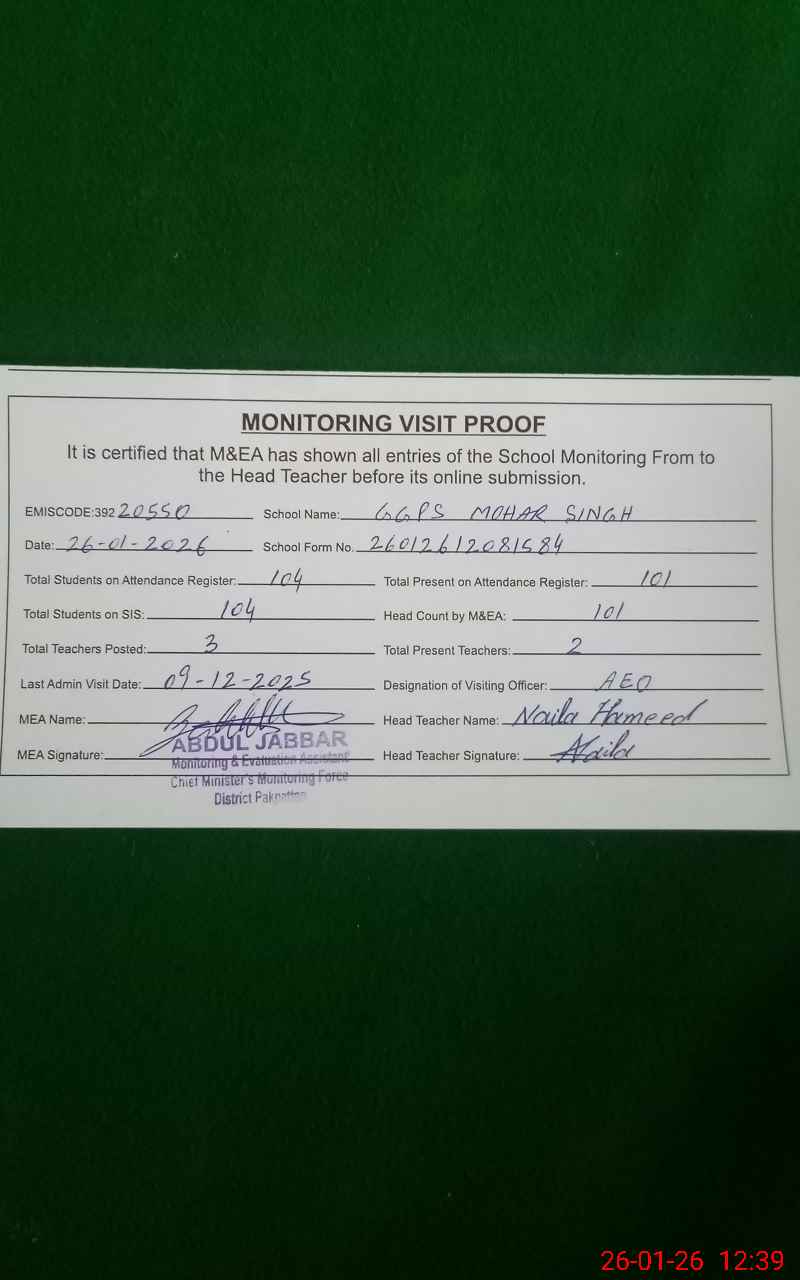 MONITORING VISIT PROOF
It is certified that M&EA has shown all entries of the School Monitoring From to
the Head Teacher before its online submission.
EMISCODE:392 20550 School Name: GGPS MOHAR SINGH
Date: 26-01-2026 School Form No. 26012612081584
Total Students on Attendance Register: 104 Total Present on Attendance Register: 101
Total Students on SIS: 104 Head Count by M&EA: 101
Total Teachers Posted: 3 Total Present Teachers: 2
Last Admin Visit Date: 09-12-2025 Designation of Visiting Officer: AEO
MEA Name: Head Teacher Name: Naila Hameed
ABDUL JABBAR
MEA Signature: Head Teacher Signature: Naila
Monitoring & Evaluation Assistant
Chief Minister's Monitoring Force
District Pakpattan
26-01-26 12:39